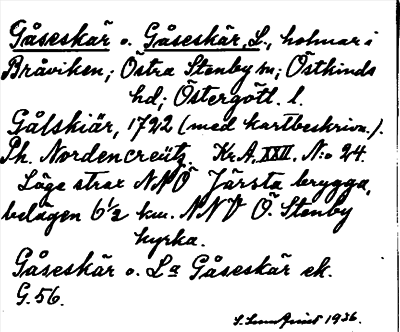 Gåseskär o. Gåseskär, L., holmar i
Bråviken; Östra Stenby sn; Östkinds
hd; Östergötl. l.
Gålskiär, 1722 (med kartbeskrivn.).
Ph. Nordencreütz. Kr.A. XXII. N:o 24.
Läge strax NNÖ Järsta brygga,
belägen 6½ km. NNV Ö. Stenby
kyrka.
Gåseskär o. La Gåseskär ek.
G. 56.
1936.